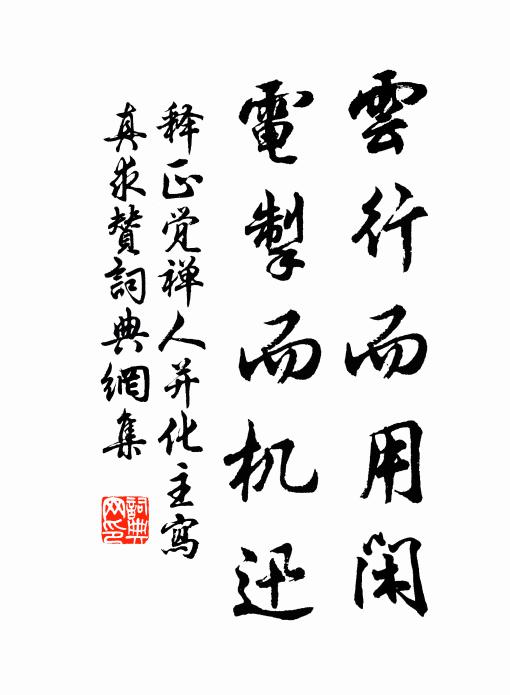 雲行而用閑
電掣而机迅
释正觉禅人并化主寫
真求贊詞典網集
詞典網印